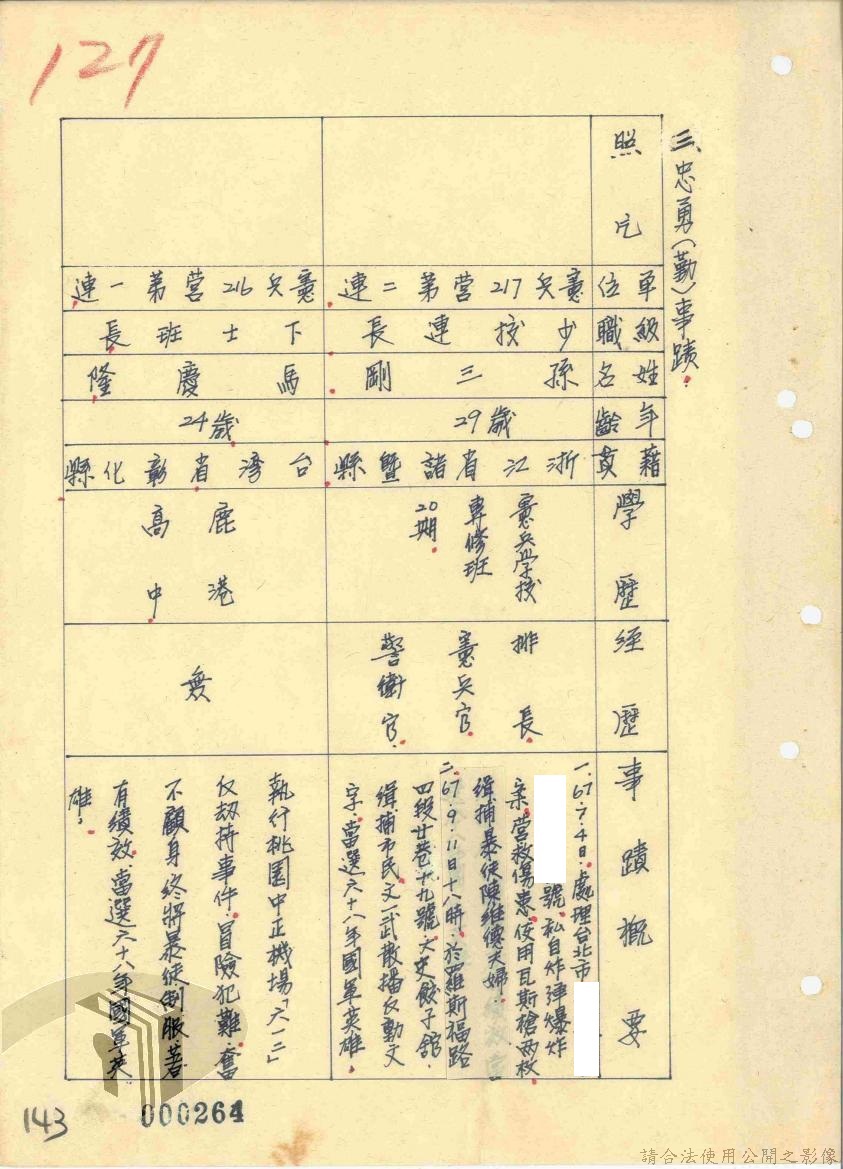 127
三、忠勇（勤）事蹟：
照片
單位
級職
姓名
年齡
藉貫
學歷
經歷
事蹟概要
憲兵217營第二連
少校連長
孫三剛
29歲
浙江省諸暨縣
憲兵學校
專修班
20期
排長
憲兵官
警衛官
一、67.7.4日，處理台北市
號，私自炸彈爆炸
案，營救傷患，使用瓦斯槍兩枚
緝捕暴徒陳維德夫婦。
二、67.9.11日十八時，於羅斯福路
四段廿巷十九號，大史餃子館，
緝捕市民文一武散播反動文
字，當選六十八年國軍英雄。
憲兵216營第一連
下士班長
馬慶隆
24歲
台灣省彰化縣
鹿港
高中
無
執行桃園中正機場「六一二」
仪劫持事件，冒險犯難，奮
不顧身，終將暴徒制服，著
有績效，當選六十八年國軍英
雄。
143
000264
請合法使用公開之影像